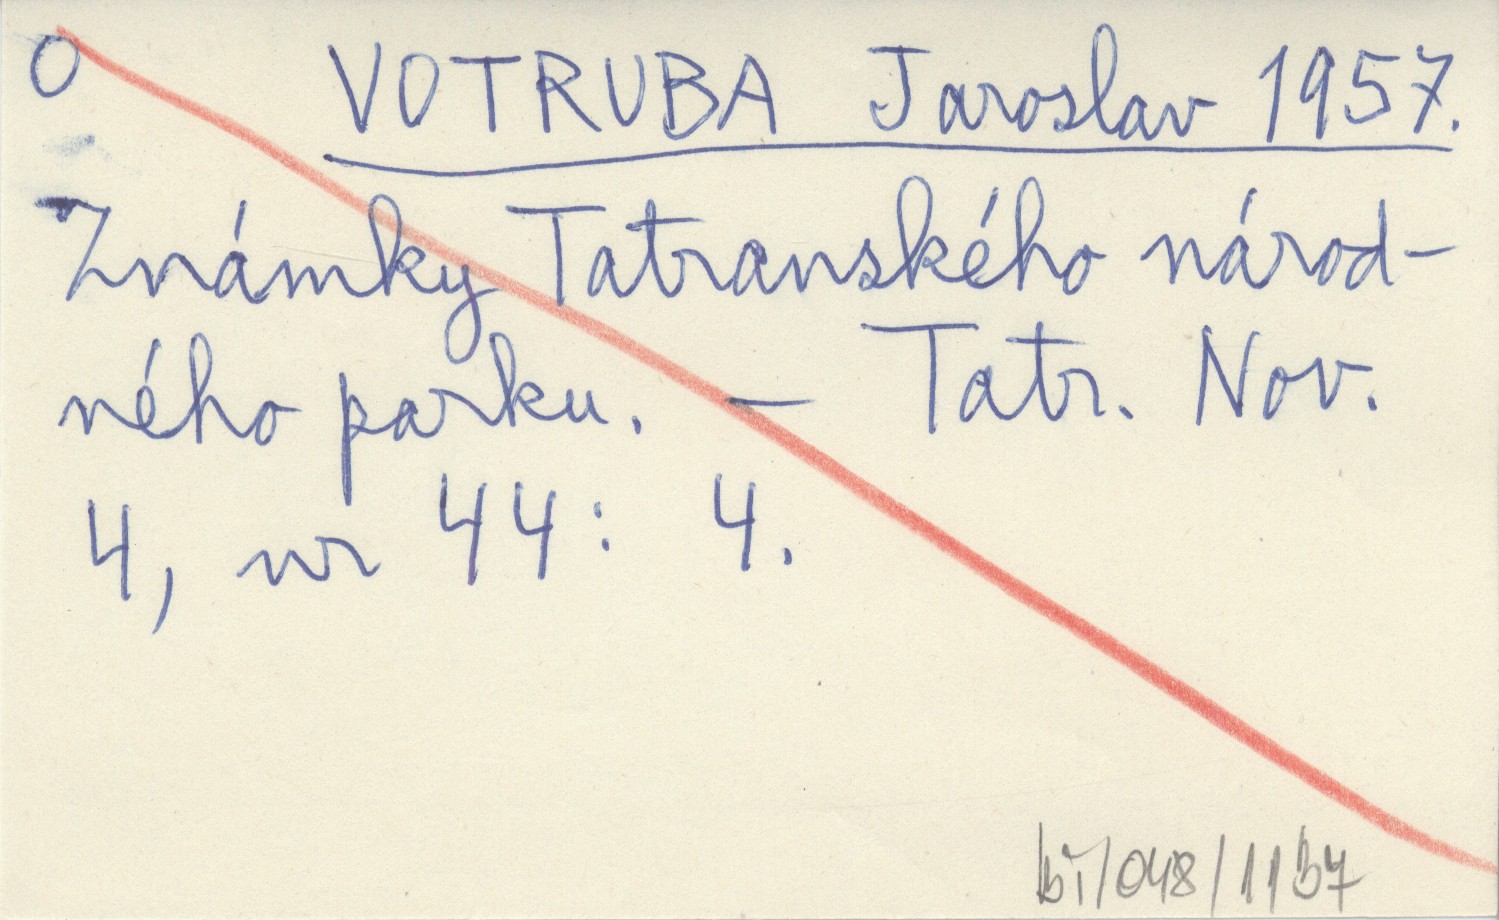 O VOTRUBA Jaroslav 1957.
Známky Tatranského národ-
ného parku. – Tatr. Nov.
4, nr 44: 4.
bi/048/1157